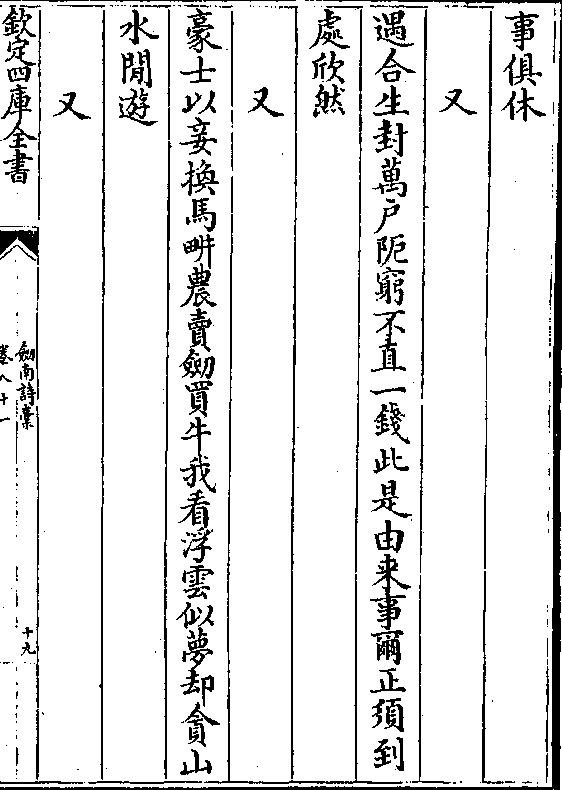 事俱休
又
遇合生封萬户阨窮不直一錢此是由来事爾正須到
處欣然
又
豪士以妾換馬畊農賣劒買牛我看浮雲似夢却貪山
水閒遊
又
欽定四庫全書
劒南詩藁
卷八十一
十九